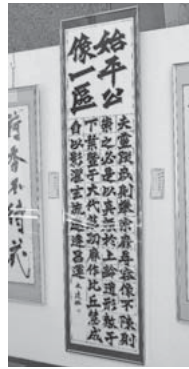 始平公
像一區
夫靈蹤則攀宗靡尋容像不陳則
崇之必是以真於上齡遺形敷于
下葉暨于大代茲功厥作比丘慧成
自以影濯玄流邀逢昌運
香不待